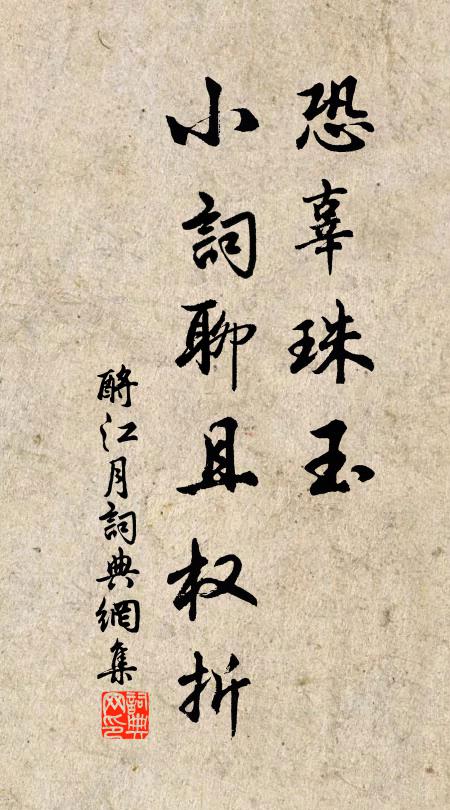 恐辜珠玉
小詞聊且权折
酹江月詞典網集
詞典
网印